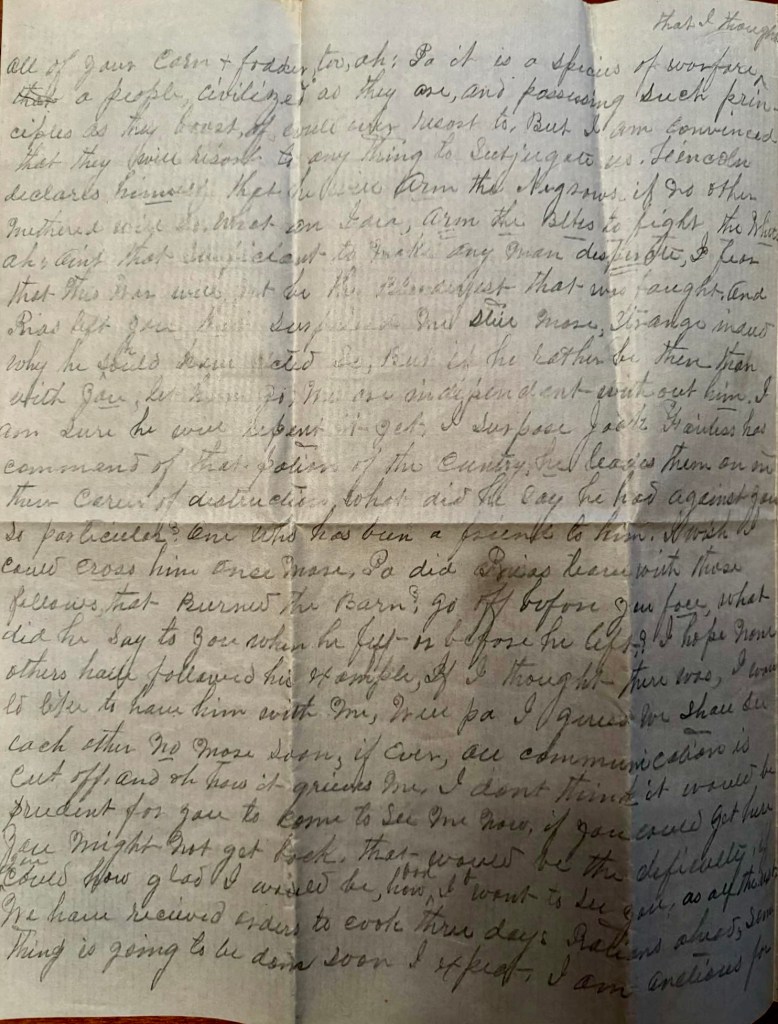 that I thought
all of your Corn & fodder, too, ah! Pa it is a species of warfare,
that a people, civilized as they are, and possessing such prin-
ciples as they boast, of would ever resort to, But I am convinced
that they will resort to any thing to Subjugate us. Lincoln
declares himself that he will Arm the Negrows, if no other
methered will do, what an Idea, Arm the Blks to fight the Whites
ah! aint that sufficient to make any man desperate, I fear
that this War will not be the that was faught. And
Rias left you that surprised me still more, Strange indeed
why he should have acted So, But if he rather be there than
with you, let him go, We are independent without him. I
am sure he will repent it yet. I Surpose Jack has
command of that potion of the Cuntry, he leades them on in
their Career of destruction, what did he Say he had against you
So particular? One who has been a friend to him. I wish I
could cross him once more. Pa did Rias leave with those
fellows, that Burned the Barn? go off before you face, what
did he Say to you when he left or before he left? I hope none
others have followed his example, If I thought there was, I wou
ld like to have him with me, Well pa I guess We Shall See
each other no more Soon, if Ever, all communication is
Cut off. And oh how it grieves Me. I dont think it would be
prudent for you to come to See Me Now, if you could get here
you might not get back. that would be the dificulty, if
you could how glad I would be, how bad I want to See you, as all the rest
We have recieved orders to cook three days Rations ahead, Some
thing is going to be done Soon I expect. I am anctious for